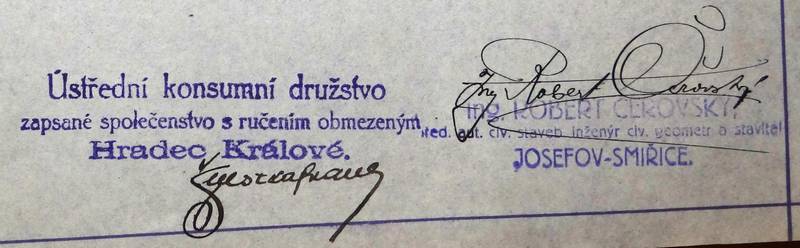 Ústřední konsumní družstvo
zapsané společenstvo s ručením obmezeným
Hradec Králové.
Ing Robert Čerovský
Ing. ROBERT ČEROVSKÝ,
aut. civ. staveb. inženýr civ. geometr a stavitel
JOSEFOV-SMIŘICE.